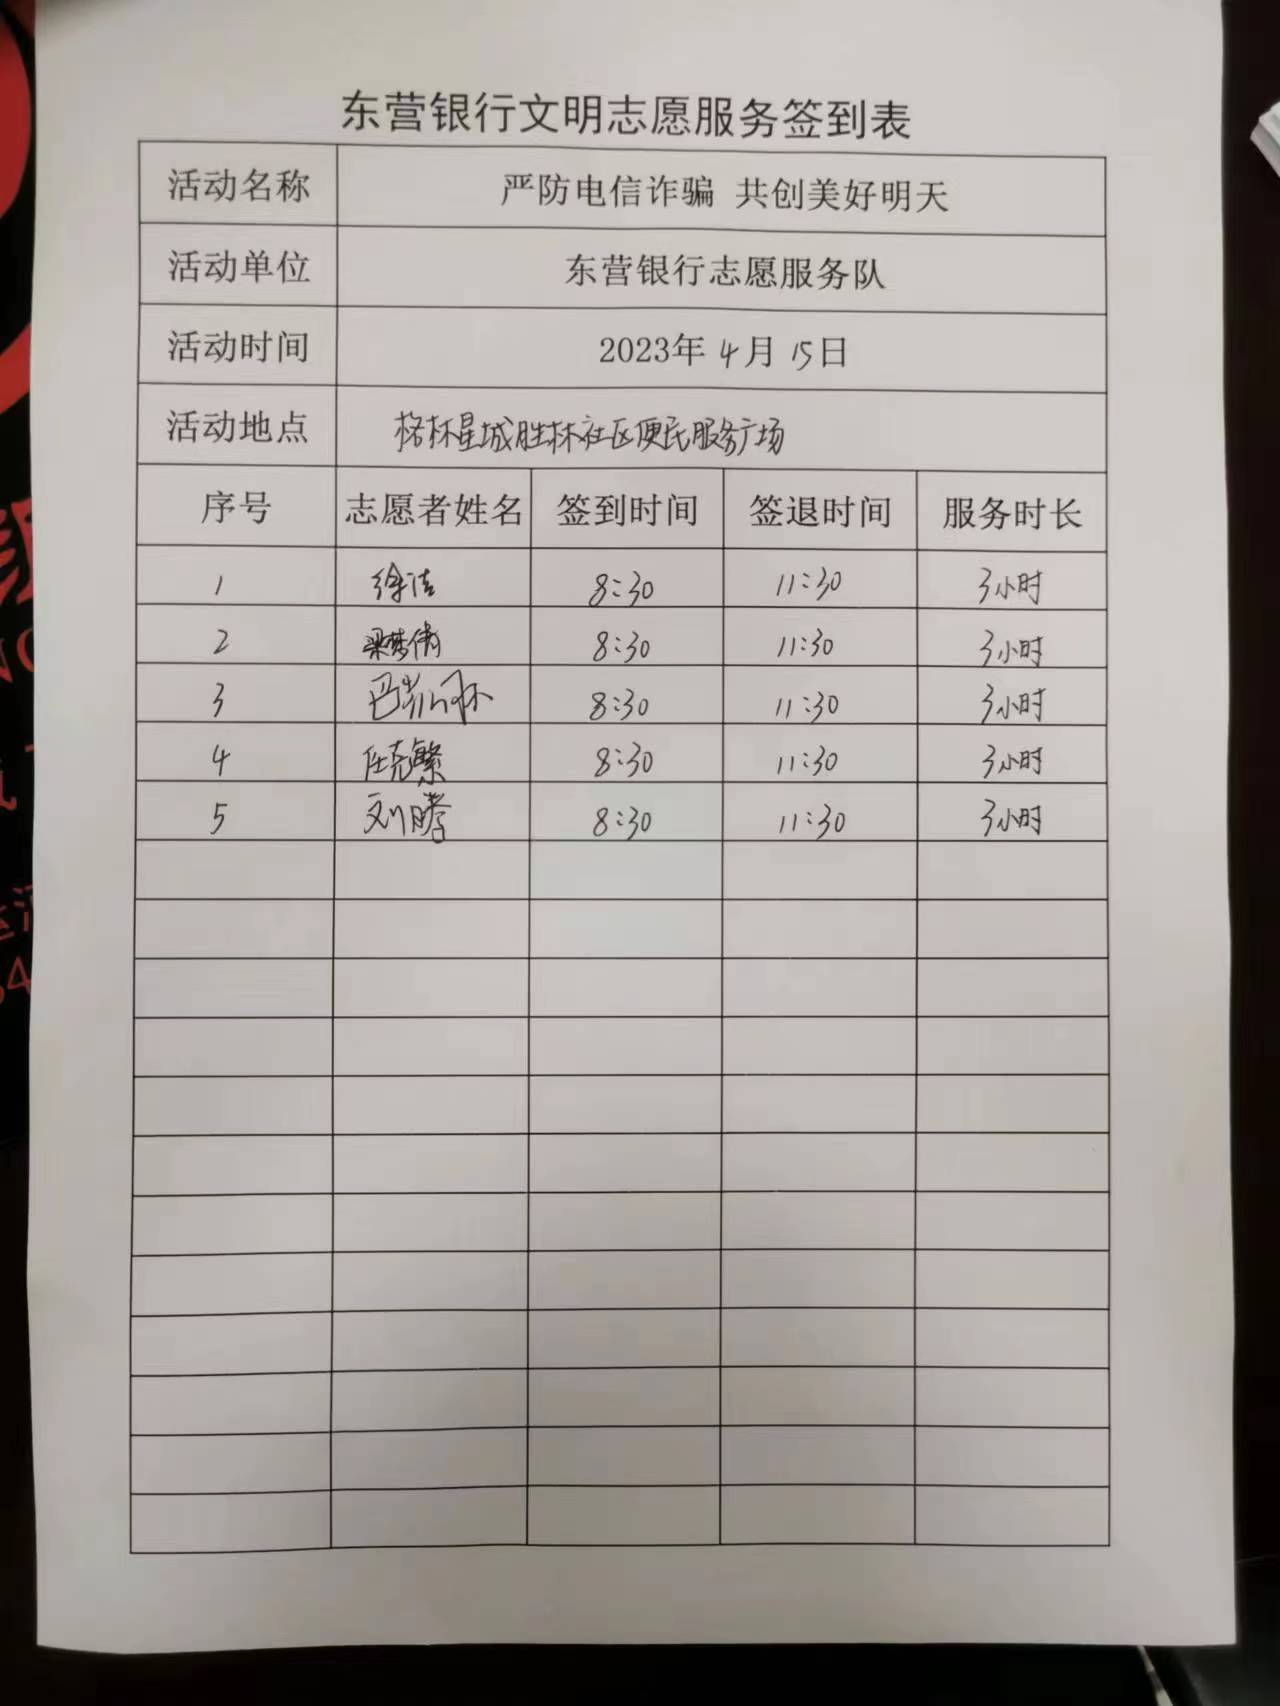 东营银行文明志愿服务签到表
活动名称 严防电信诈骗 共创美好明天
活动单位 东营银行志愿服务队
活动时间 2023年4月15日
活动地点 格林星城胜林社区便民服务广场
序号 志愿者姓名 签到时间 签退时间 服务时长
1 徐洁 8:30 11:30 3小时
2 梁梦倩 8:30 11:30 3小时
3 8:30 11:30 3小时
4 任克繁 8:30 11:30 3小时
5 刘腾 8:30 11:30 3小时